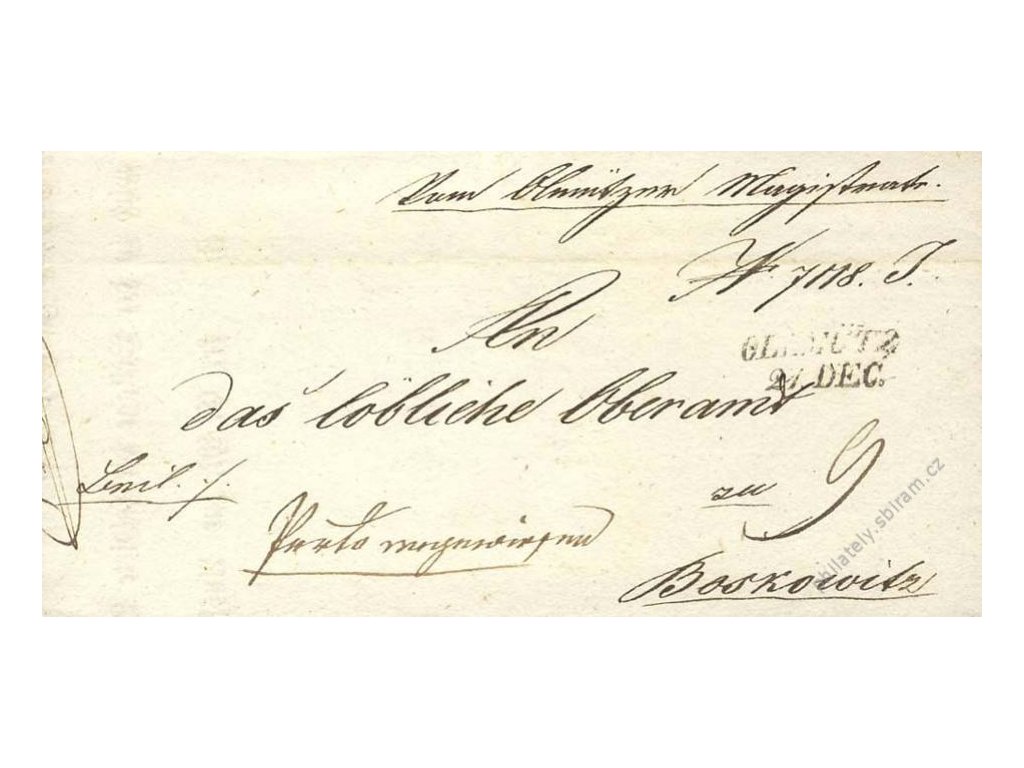 Vom Olmützer Magistrate.
N. 7118. J.
An
OLMÜTZ
27. DEC.
das löbliche Oberamt
9
zu
Porto
Boskowitz
philately.sbiram.cz